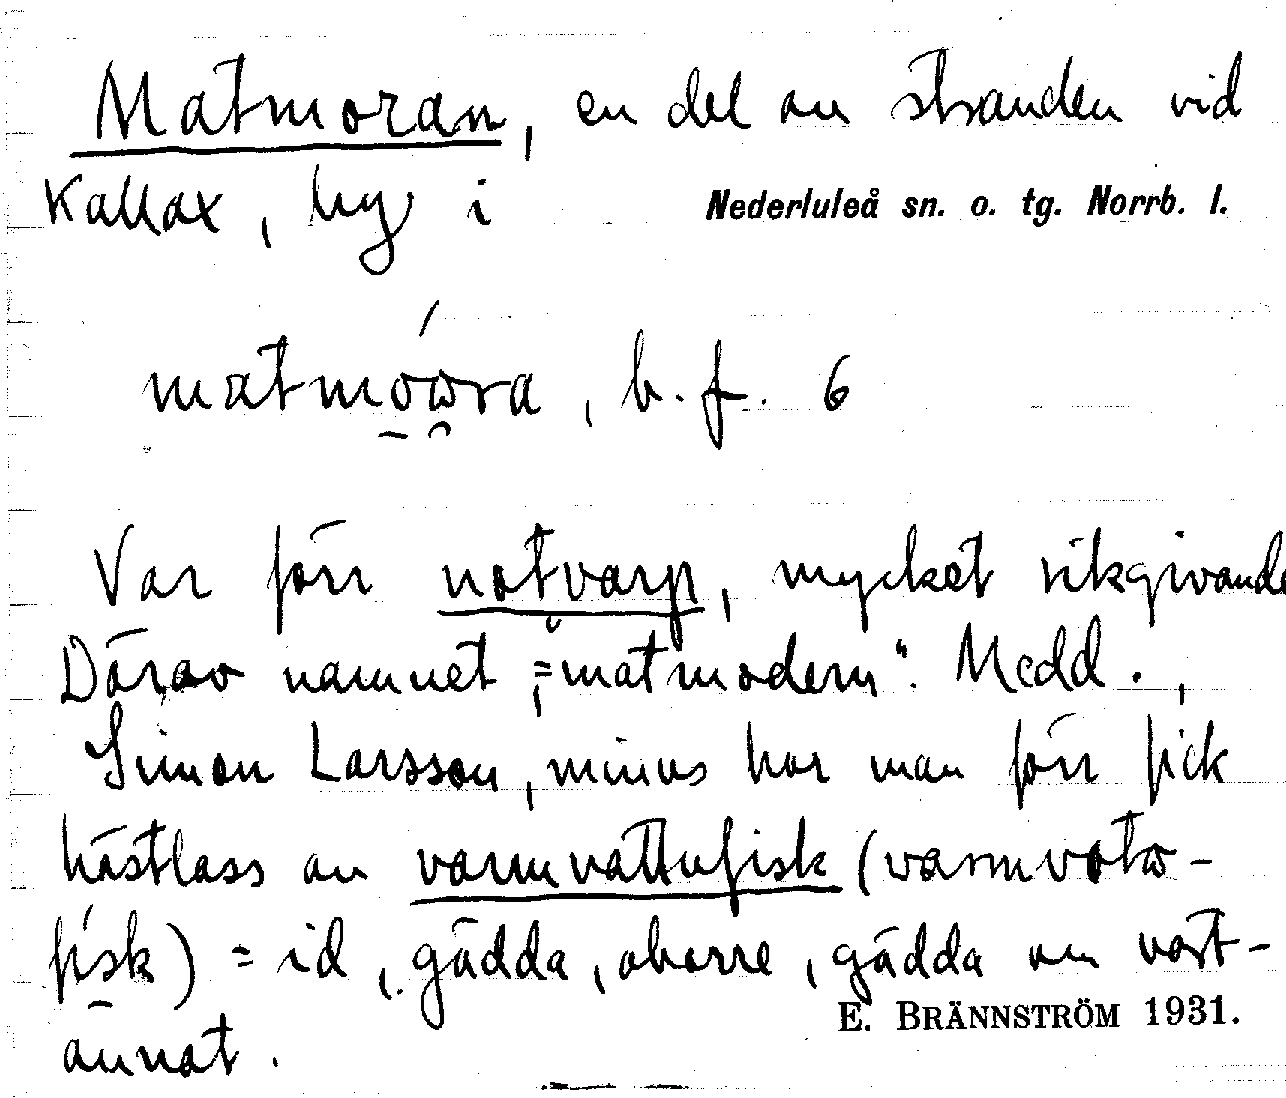 Matmoran, en del av stranden vid
Kallax, by i Nederluleå sn. o. tg. Norrb. l.
matmóωra, b.f. 6
Var förr notvarp, mycket rikgivande
Därav namnet, = "matmodern". Medd.,
Simon Larsson, minns hur man förr fick
hästlass av varmvattufisk (varmvatω-
fisk) = id, gädda, aborre, gädda av vart-
annat.
E. BRÄNNSTRÖM 1931.